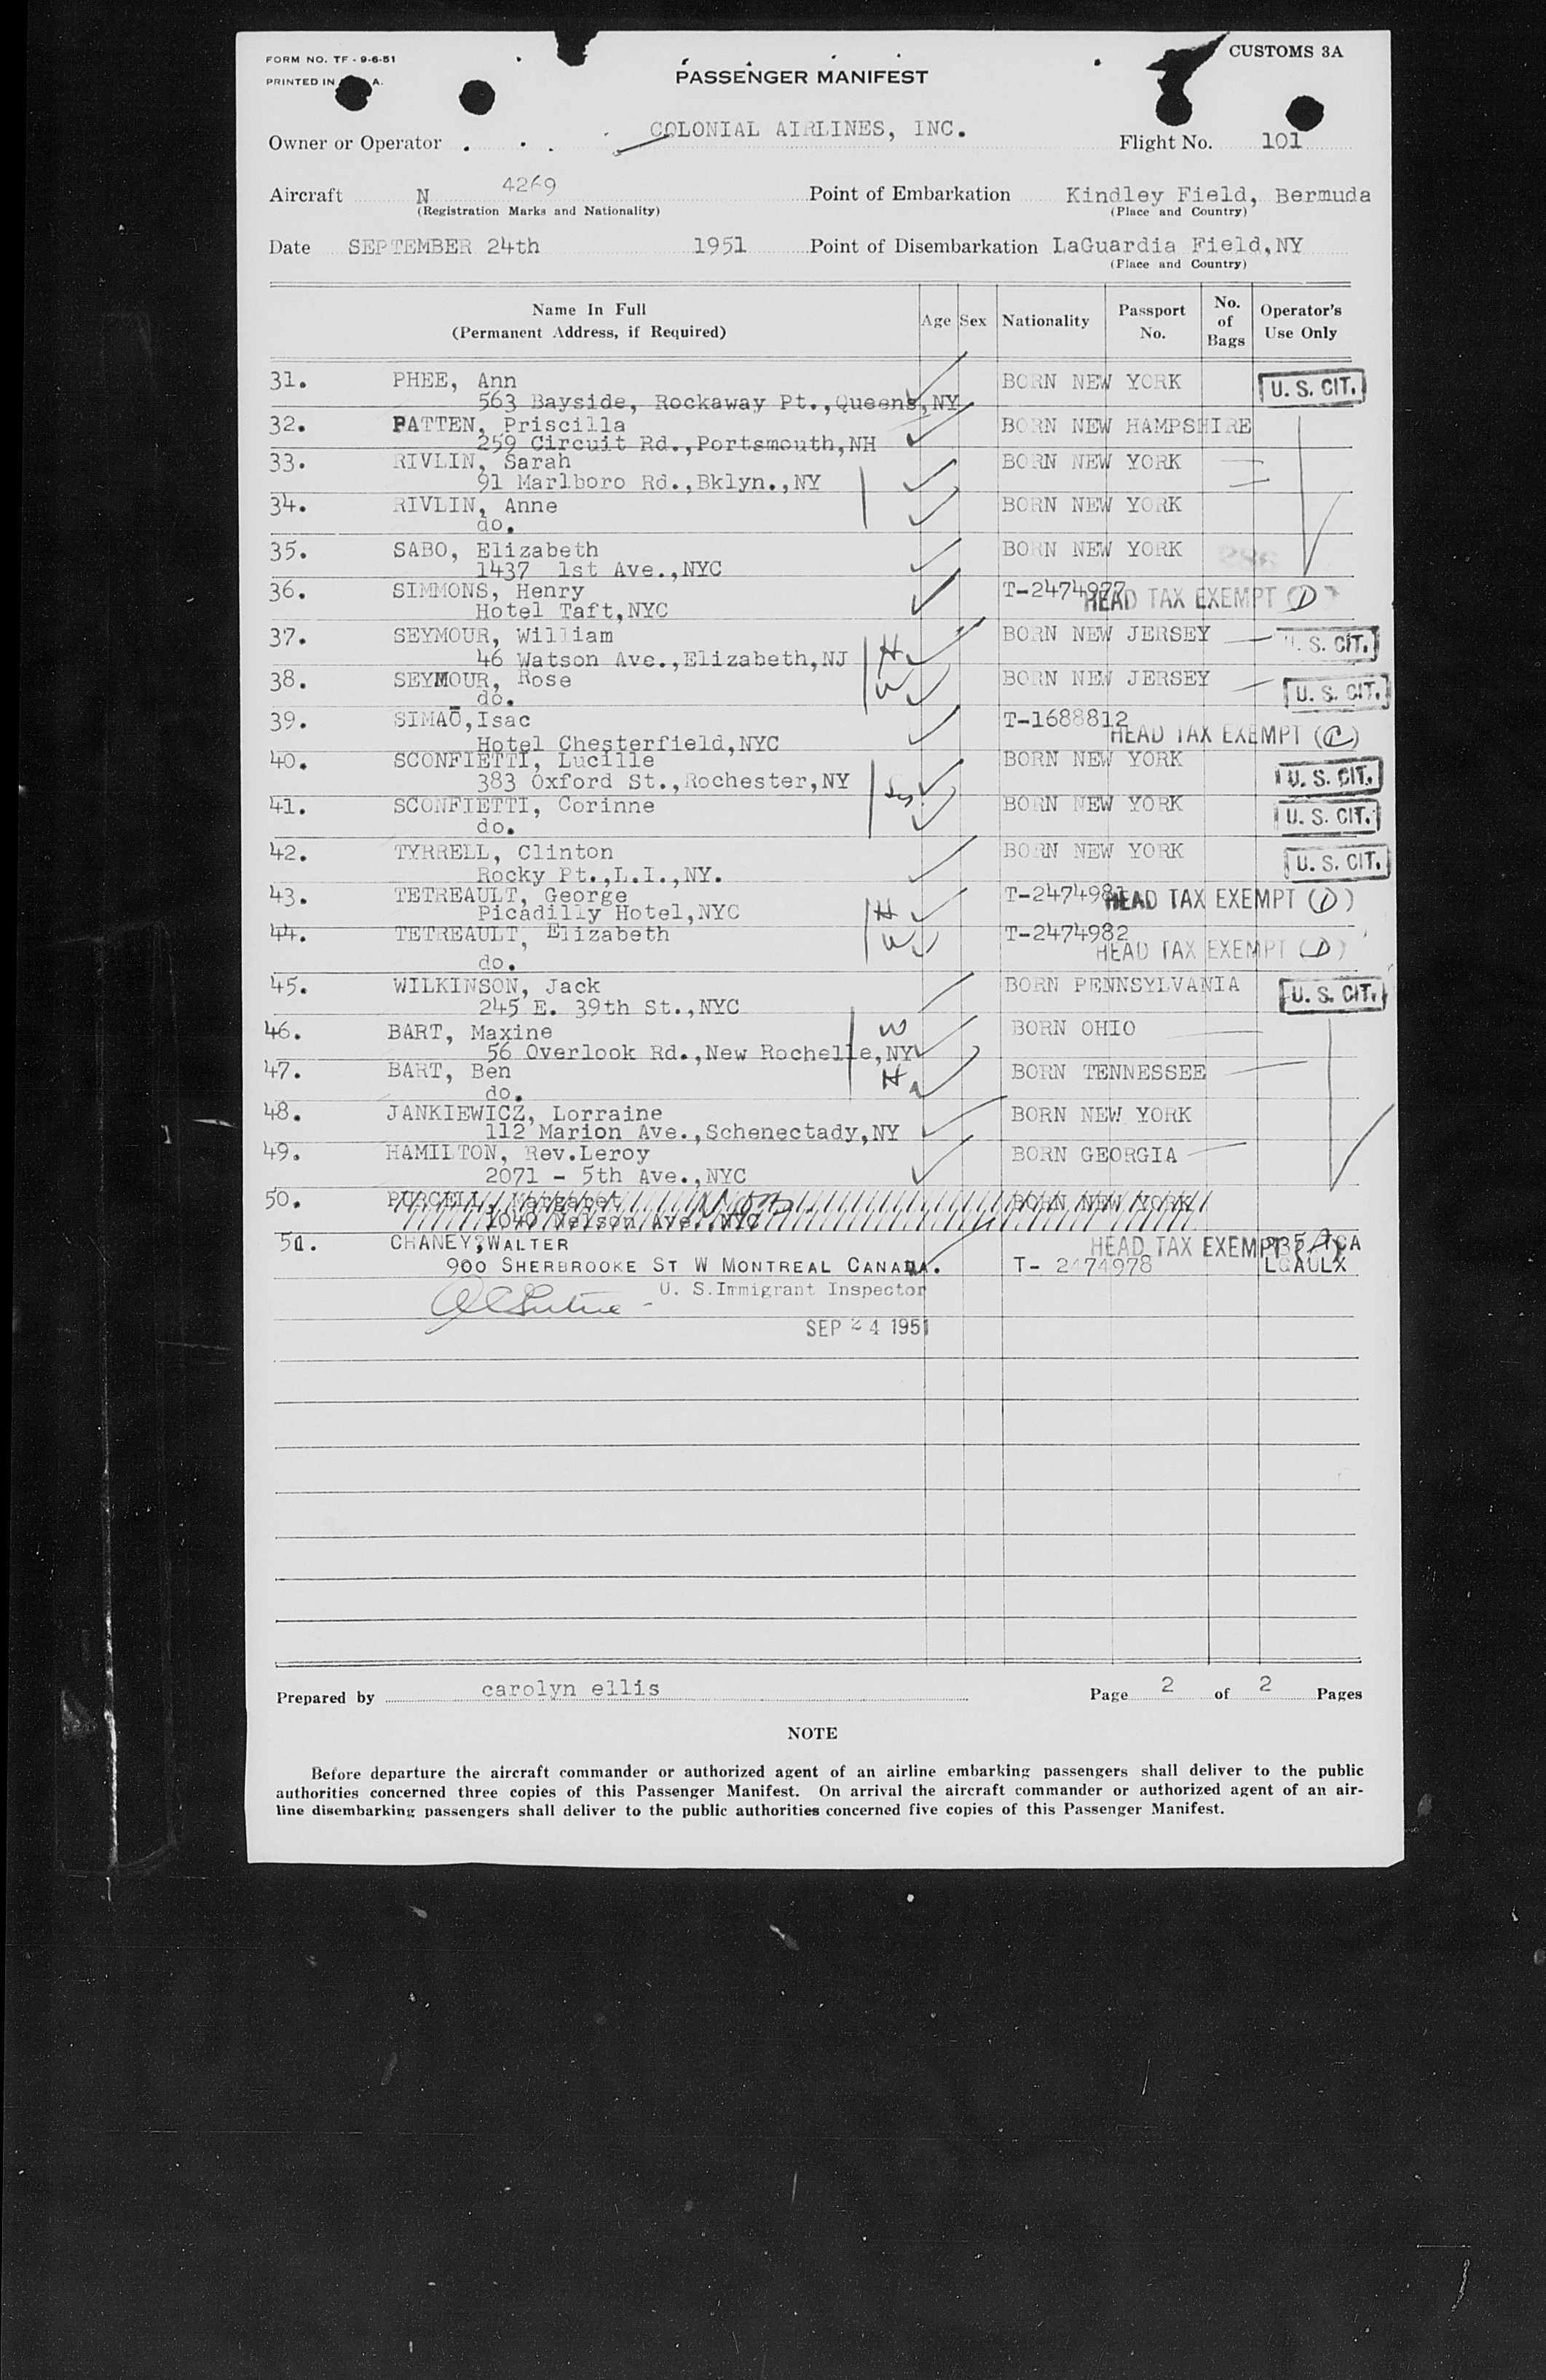 FORM NO. TF - 9-6-51
CUSTOMS 3A
PRINTED IN A.
PASSENGER MANIFEST
COLONIAL AIRLINES, INC.
Owner or Operator
Flight No. 101
Aircraft N 4269
Point of Embarkation Kindley Field, Bermuda
(Registration Marks and Nationality)
(Place and Country)
Date SEPTEMBER 24th 1951
Point of Disembarkation LaGuardia Field,NY
(Place and Country)
Name In Full
(Permanent Address, if Required)
Age
Sex
Nationality
Passport No.
No. of Bags
Operator's Use Only
31. PHEE, Ann BORN NEW YORK U. S. CIT.
563 Bayside, Rockaway Pt.,Queens,NY
32. PATTEN, Priscilla BORN NEW HAMPSHIRE
259 Circuit Rd.,Portsmouth,NH
33. RIVLIN, Sarah BORN NEW YORK
91 Marlboro Rd.,Bklyn.,NY
34. RIVLIN, Anne BORN NEW YORK
do.
35. SABO, Elizabeth BORN NEW YORK
1437 1st Ave.,NYC
36. SIMMONS, Henry T-2474977 HEAD TAX EXEMPT (D)
Hotel Taft,NYC
37. SEYMOUR, William H BORN NEW JERSEY U. S. CIT.
46 Watson Ave.,Elizabeth,NJ
38. SEYMOUR, Rose W BORN NEW JERSEY U. S. CIT.
do.
39. SIMAŌ,Isac T-1688812 HEAD TAX EXEMPT (C)
Hotel Chesterfield,NYC
40. SCONFIETTI, Lucille BORN NEW YORK U. S. CIT.
383 Oxford St.,Rochester,NY
41. SCONFIETTI, Corinne BORN NEW YORK U. S. CIT.
do.
42. TYRRELL, Clinton BORN NEW YORK U. S. CIT.
Rocky Pt.,L.I.,NY.
43. TETREAULT, George H T-2474981 HEAD TAX EXEMPT (D)
Picadilly Hotel,NYC
44. TETREAULT, Elizabeth W T-2474982 HEAD TAX EXEMPT (D)
do.
45. WILKINSON, Jack BORN PENNSYLVANIA U. S. CIT.
245 E. 39th St.,NYC
46. BART, Maxine W BORN OHIO
56 Overlook Rd.,New Rochelle,NY
47. BART, Ben H BORN TENNESSEE
do.
48. JANKIEWICZ, Lorraine BORN NEW YORK
112 Marion Ave.,Schenectady,NY
49. HAMILTON, Rev.Leroy BORN GEORGIA
2071 - 5th Ave.,NYC
50. PURCELL, Margaret BORN NEW YORK
1040 Nelson Ave.,NYC
51. CHANEY,WALTER HEAD TAX EXEMPT
900 SHERBROOKE ST W MONTREAL CANADA. T- 2474978 LGAULX
U. S.Immigrant Inspector
SEP 24 1951
Prepared by carolyn ellis
Page 2 of 2 Pages
NOTE
Before departure the aircraft commander or authorized agent of an airline embarking passengers shall deliver to the public
authorities concerned three copies of this Passenger Manifest. On arrival the aircraft commander or authorized agent of an air-
line disembarking passengers shall deliver to the public authorities concerned five copies of this Passenger Manifest.